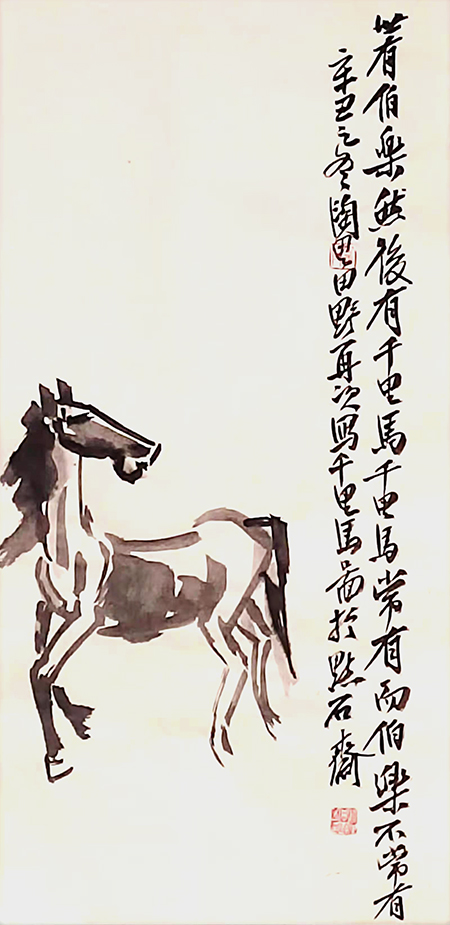 世有伯樂然後有千里馬千里馬常有而伯樂不常有
辛丑之冬陶里田野再次寫千里馬圖於點石齋